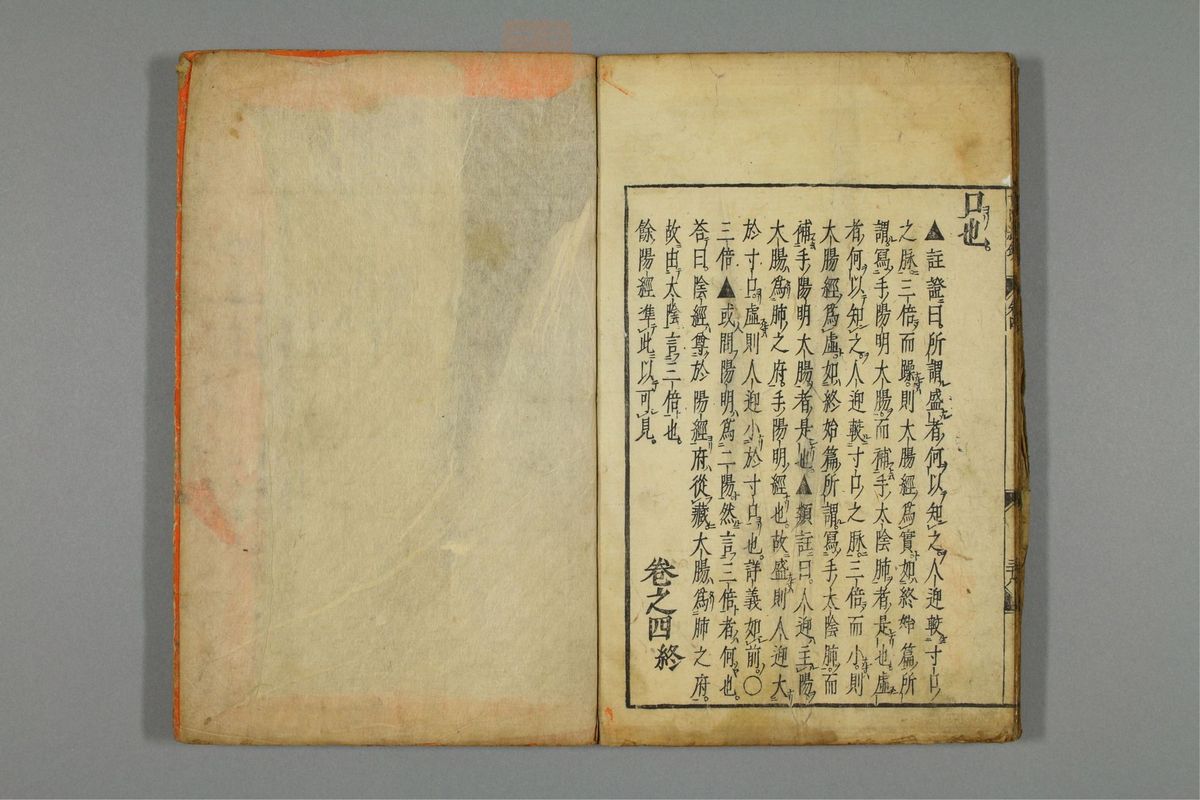 口也。
▲註證曰所謂盛者何以知之人迎較寸口
之脉三倍而躁。則大腸經爲實。如終始篇所
謂寫手陽明大腸。而補手太陰肺者是也。虛
者何以知之。人迎較寸口之脉。三倍而小。則
大腸經爲虛。如終始篇所謂寫手太陰肺。而
補手陽明大腸者是也▲類註曰。人迎主陽。
大腸爲肺之府。手陽明經也。故盛則人迎大
於寸口。虛則人迎小於寸口也。詳義如前。〇
三倍▲或問陽明爲二陽。然言三倍者何也。
答曰。陰經尊於陽經。府從藏大腸爲肺之府。
故由太陰言三倍也。
餘陽經準此以可見。
卷之四終